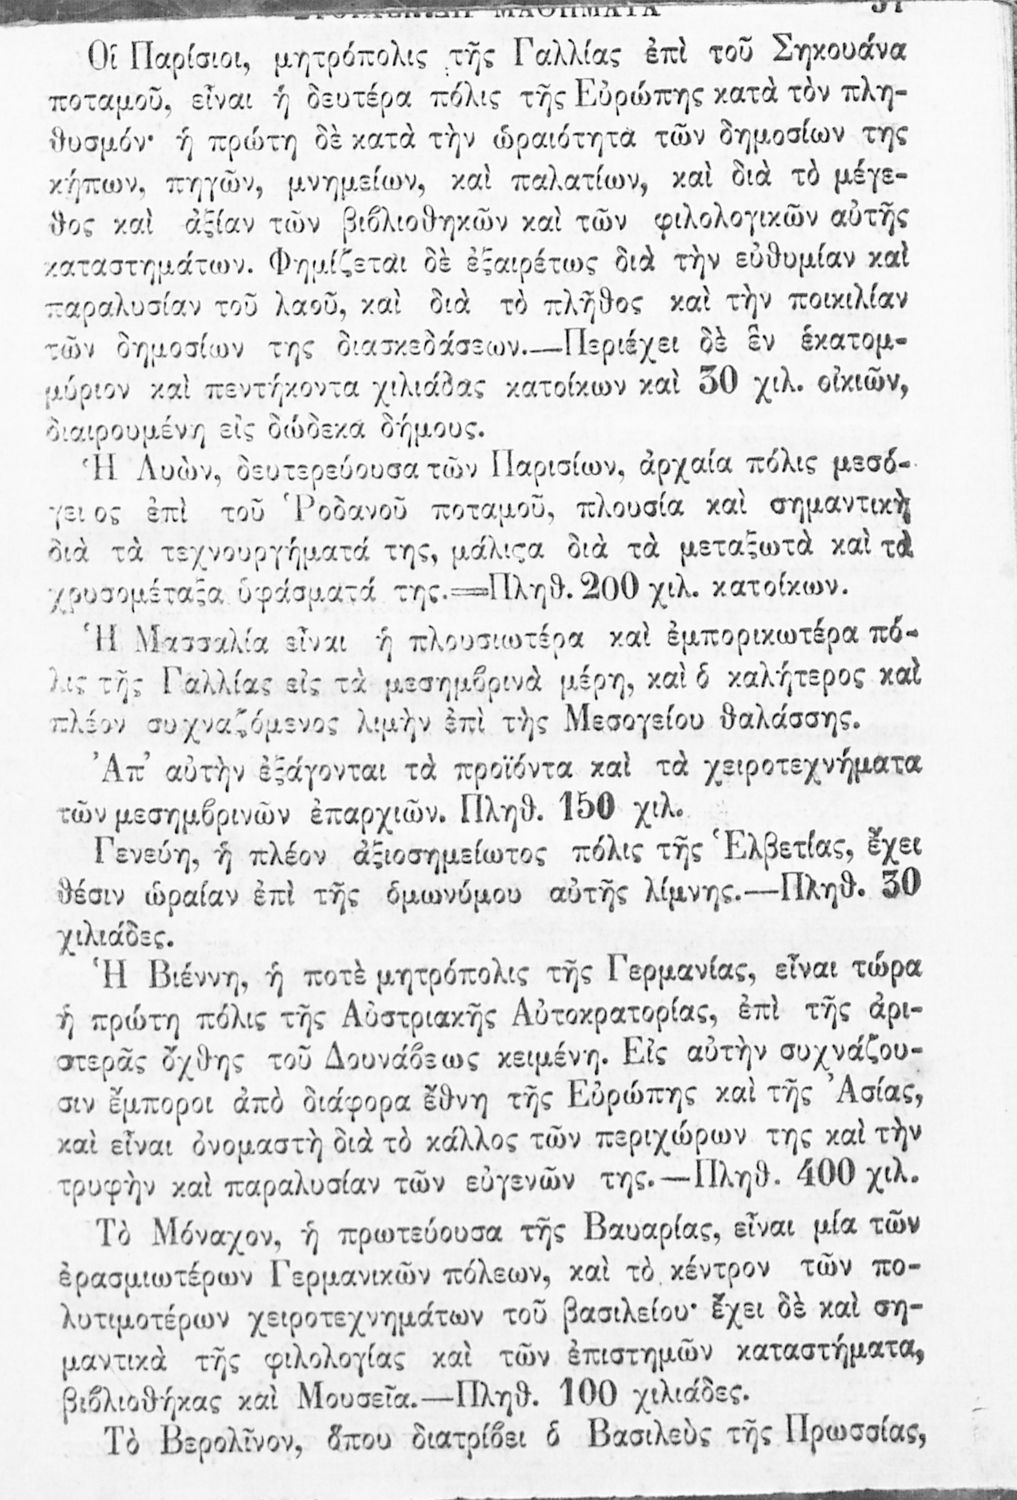 ΣΤΟΙΧΕΙΩΔΗ ΜΑΘΗΜΑΤΑ
Οἱ Παρίσιοι, μητρόπολις τῆς Γαλλίας ἐπὶ τοῦ Σηκουάνα
ποταμοῦ, εἶναι ἡ δευτέρα πόλις τῆς Εὐρώπης κατὰ τὸν πλη-
θυσμόν· ἡ πρώτη δὲ κατὰ τὴν ὡραιότητα τῶν δημοσίων της
κήπων, πηγῶν, μνημείων, καὶ παλατίων, καὶ διὰ τὸ μέγε-
θος καὶ ἀξίαν τῶν βιβλιοθηκῶν καὶ τῶν φιλολογικῶν αὐτῆς
καταστημάτων. Φημίζεται δὲ ἐξαιρέτως διὰ τὴν εὐθυμίαν καὶ
παραλυσίαν τοῦ λαοῦ, καὶ διὰ τὸ πλῆθος καὶ τὴν ποικιλίαν
τῶν δημοσίων της διασκεδάσεων.—Περιέχει δὲ ἓν ἑκατομ-
μύριον καὶ πεντήκοντα χιλιάδας κατοίκων καὶ 30 χιλ. οἰκιῶν,
διαιρουμένη εἰς δώδεκα δήμους.
Ἡ Λυὼν, δευτερεύουσα τῶν Παρισίων, ἀρχαία πόλις μεσό-
γειος ἐπὶ τοῦ Ῥοδανοῦ ποταμοῦ, πλουσία καὶ σημαντικὴ
διὰ τὰ τεχνουργήματά της, μάλιϛα διὰ τὰ μεταξωτὰ καὶ τὰ
χρυσομέταξα ὑφάσματά της.=Πληθ. 200 χιλ. κατοίκων.
Ἡ Μασσαλία εἶναι ἡ πλουσιωτέρα καὶ ἐμπορικωτέρα πό-
λις τῆς Γαλλίας εἰς τὰ μεσημβρινὰ μέρη, καὶ ὁ καλήτερος καὶ
πλέον συχναζόμενος λιμὴν ἐπὶ τὴς Μεσογείου θαλάσσης.
Ἀπ' αὐτὴν ἐξάγονται τὰ προϊόντα καὶ τὰ χειροτεχνήματα
τῶν μεσημβρινῶν ἐπαρχιῶν. Πληθ. 150 χιλ.
Γενεύη, ἡ πλέον ἀξιοσημείωτος πόλις τῆς Ἑλβετίας, ἔχει
θέσιν ὡραίαν ἐπὶ τῆς ὁμωνύμου αὐτῆς λίμνης.—Πληθ. 30
χιλιάδες.
Ἡ Βιέννη, ἡ ποτὲ μητρόπολις τῆς Γερμανίας, εἶναι τώρα
ἡ πρώτη πόλις τῆς Αὐστριακῆς Αὐτοκρατορίας, ἐπὶ τῆς ἀρι-
στερᾶς ὄχθης τοῦ Δουνάβεως κειμένη. Εἰς αὐτὴν συχνάζου-
σιν ἔμποροι ἀπὸ διάφορα ἔθνη τῆς Εὐρώπης καὶ τῆς Ἀσίας,
καὶ εἶναι ὀνομαστὴ διὰ τὸ κάλλος τῶν περιχώρων της καὶ τὴν
τρυφὴν καὶ παραλυσίαν τῶν εὐγενῶν της.—Πληθ. 400 χιλ.
Τὸ Μόναχον, ἡ πρωτεύουσα τῆς Βαυαρίας, εἶναι μία τῶν
ἐρασμιωτέρων Γερμανικῶν πόλεων, καὶ τὸ κέντρον τῶν πο-
λυτιμοτέρων χειροτεχνημάτων τοῦ βασιλείου· ἔχει δὲ καὶ ση-
μαντικὰ τῆς φιλολογίας καὶ τῶν ἐπιστημῶν καταστήματα,
βιβλιοθήκας καὶ Μουσεῖα.—Πληθ. 100 χιλιάδες.
Τὸ Βερολῖνον, ὅπου διατρίβει ὁ Βασιλεὺς τῆς Πρωσσίας,